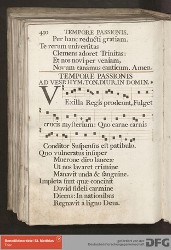 420 TEMPORE PASSIONIS.
Per hanc reducti gratiam.
Te rerum universitas
Clemens adoret Trinitas:
Et nos novi per veniam,
Novum canamus canticum. Amen.
TEMPORE PASSIONIS
AD VESP. HYM. TON. DIUR. IN DOMIN.
Vexilla Regis prodeunt, Fulget
crucis mysterium: Quo carne carnis
Conditor Suspensus est patibulo.
Quo vulneratus insuper
Mucrone diro lanceæ
Ut nos lavaret crimine
Manavit unda & sanguine.
Impleta sunt quæ concinit
David fideli carmine
Dicens: In nationibus
Regnavit a ligno Deus.
DFG